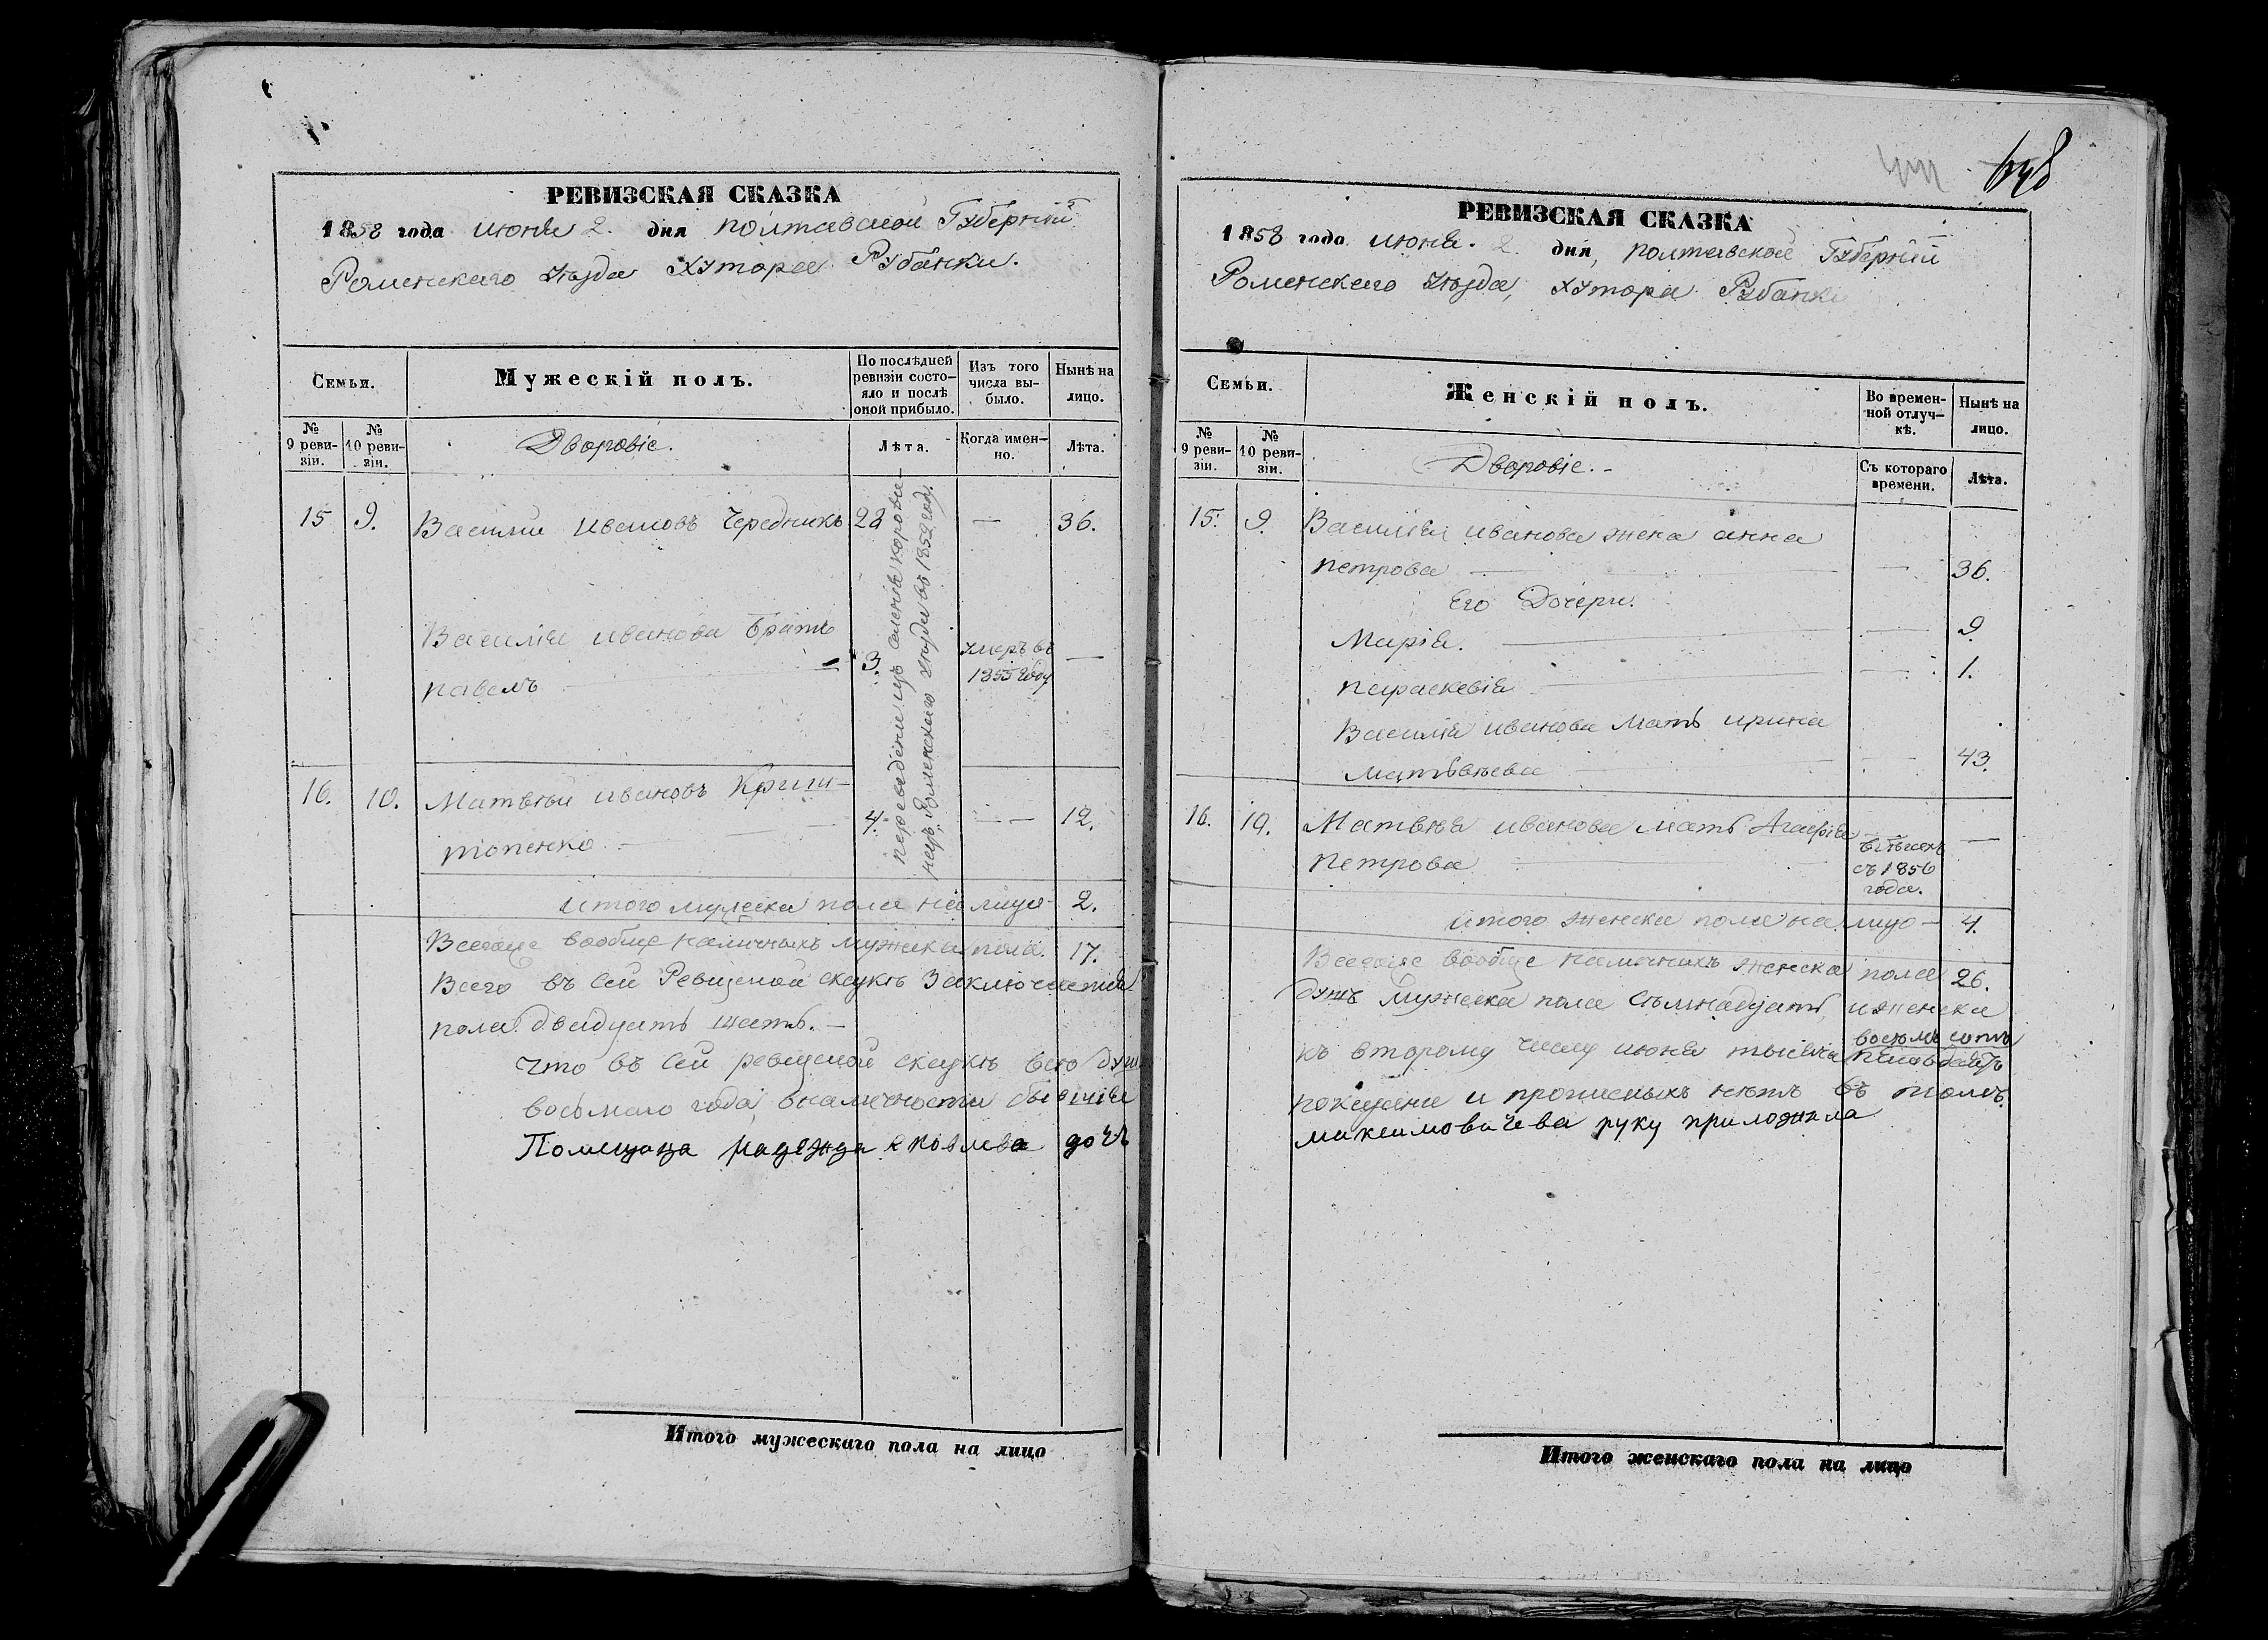 РЕВИЗСКАЯ СКАЗКА
1858 года июня 2. дня Полтавской Губерніи
Роменскаго Уѣзда Хутора Рубанки.
Семьи.
Мужескій полъ.
По послѣдней ревизіи состояло и послѣ оной прибыло.
Изъ того числа выбыло.
Нынѣ на лицо.
№ 9 ревизіи.
№ 10 ревизіи.
Дворовіе.
Лѣта.
Когда именно.
Лѣта.
15 9. Василий Ивановъ Чередникъ 22 — 36.
Василія Иванова братъ
Павелъ — 3. умеръ въ 1855 году —
16. 10. Матвѣй Ивановъ Криш-
топенко — 4. — — 12.
переведени изъ селенія Корови-
нецъ Роменскаго уѣзда въ 1852 году.
Итого мужеска пола на лицо 2.
Всегоже вообще наличныхъ мужска пола. 17.
Всего въ сей Ревизской сказкѣ заключается
пола двадцать шесть. —
Что въ сей ревизской сказкѣ всѣ души
восьмаго года, вналичности бывшіе
Помѣщица Надежда Яковлева дочь
РЕВИЗСКАЯ СКАЗКА
1858 года июня. 2 дня, Полтавской Губерніи
Роменскаго Уѣзда, хутора Рубанки
Семьи.
Женскій полъ.
Во временной отлучкѣ.
Нынѣ на лицо.
№ 9 ревизіи.
№ 10 ревизіи.
Дворовіе. -
Съ котораго времени.
Лѣта.
15. 9. Василія Иванова жена Анна
Петрова — — 36.
Его Дочери.
Марія. — — 9.
Параскевія — — 1.
Василія Иванова мать Ирина
Матвѣева — — 43.
16. 10. Матвѣя Иванова мать Агафія
Петрова — въ бѣгахъ съ 1856 года. —
Итого женска пола на лицо — 4.
Всегоже вообще наличныхъ женска пола 26.
душъ Мужеска пола семнадцать, и женска
восемь сотъ
къ второму числу июня тысяча пятьдесятъ
показани и прописныхъ нѣтъ въ томъ.
Максимовичева руку приложила
Итого мужескаго пола на лицо
Итого женскаго пола на лицо